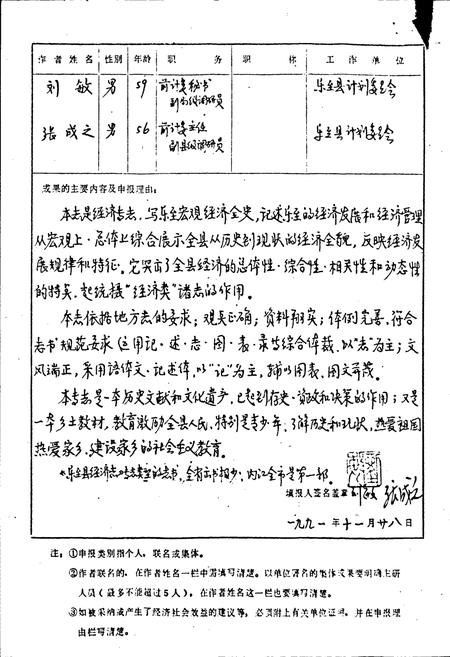 作者姓名 性别 年龄 职务 职称 工作单位
刘敏 男 59 前计委秘书 乐至县计划委员会
副局级调研员
张成之 男 56 前计委主任 乐至县计划委员会
副县级调研员
成果的主要内容及申报理由:
本志是经济专志,写乐至宏观经济全史,记述乐至的经济发展和经济管理
从宏观上、总体上综合展示全县从历史到现状的经济全貌,反映经济发
展规律和特征。它突出了全县经济的总体性、综合性、相关性和动态性
的特点,起统揽“经济类”诸志的作用。
本志依据地方志的要求;观点正确;资料翔实;体例完善,符合
志书规范要求(运用记、述、志、图、表、录等综合体裁,以“志”为主;文
风端正,采用语体文、记述体,以“记”为主,辅以图表,图文并茂。
本专志是一本历史文献和文化遗产,已起到存史、资政和决策的作用;又是
一本乡土教材,教育激励全县人民,特别是青少年,了解历史和现状,热爱祖国
热爱家乡,建设家乡的社会主义教育。
《乐至县经济志》 的志书,全省 内江全市是第一部。
填报人签名盖章 刘敏 张成之
一九九一年十一月廿八日
注:①申报类别指个人,联名或集体。
②作者联名的,在作者姓名一栏中需填写清楚。以单位署名的集体成果要明确主研
人员(最多不能超过5人),在作者姓名这一栏也要填写清楚。
③如被采纳或产生了经济社会效益的建议等,必须附上有关单位证明,并在申报理
由栏写清楚。